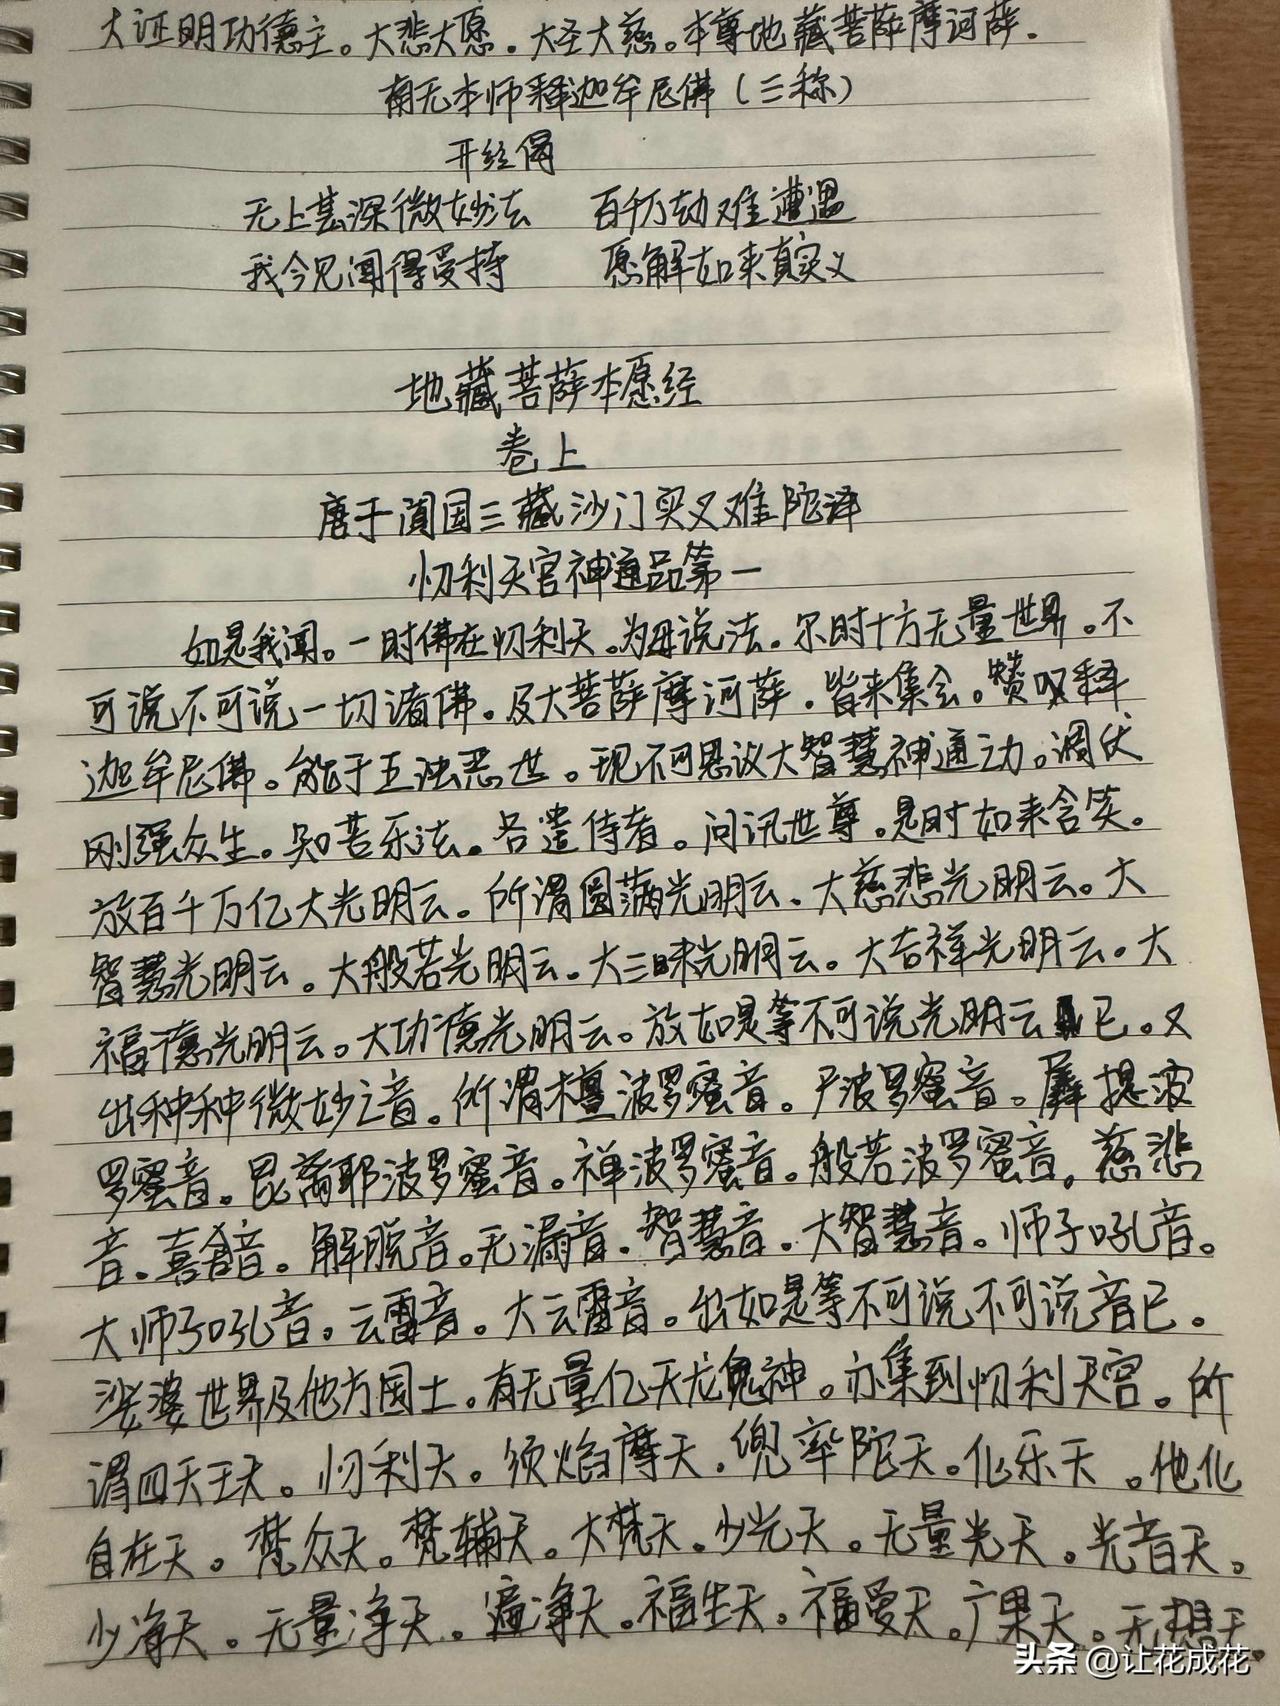 大证明功德主。大悲大愿。大圣大慈。本尊地藏菩萨摩诃萨。
南无本师释迦牟尼佛(三称)
开经偈
无上甚深微妙法 百千万劫难遭遇
我今见闻得受持 愿解如来真实义
地藏菩萨本愿经
卷上
唐于阗国三藏沙门实叉难陀译
忉利天宫神通品第一
如是我闻。一时佛在忉利天。为母说法。尔时十方无量世界。不
可说不可说一切诸佛。及大菩萨摩诃萨。皆来集会。赞叹释
迦牟尼佛。能于五浊恶世。现不可思议大智慧神通之力。调伏
刚强众生。知苦乐法。各遣侍者。问讯世尊。是时如来含笑。
放百千万亿大光明云。所谓圆满光明云。大慈悲光明云。大
智慧光明云。大般若光明云。大三昧光明云。大吉祥光明云。大
福德光明云。大功德光明云。放如是等不可说光明云已。又
出种种微妙之音。所谓檀波罗蜜音。尸波罗蜜音。羼提波
罗蜜音。毘离耶波罗蜜音。禅波罗蜜音。般若波罗蜜音。慈悲
音。喜舍音。解脱音。无漏音。智慧音。大智慧音。师子吼音。
大师子吼音。云雷音。大云雷音。出如是等不可说不可说音已。
娑婆世界及他方国土。有无量亿天龙鬼神。亦集到忉利天宫。所
谓四天王天。忉利天。须焰摩天。兜率陀天。化乐天。他化
自在天。梵众天。梵辅天。大梵天。少光天。无量光天。光音天。
少净天。无量净天。遍净天。福生天。福爱天。广果天。无想天。
头条 @让花成花